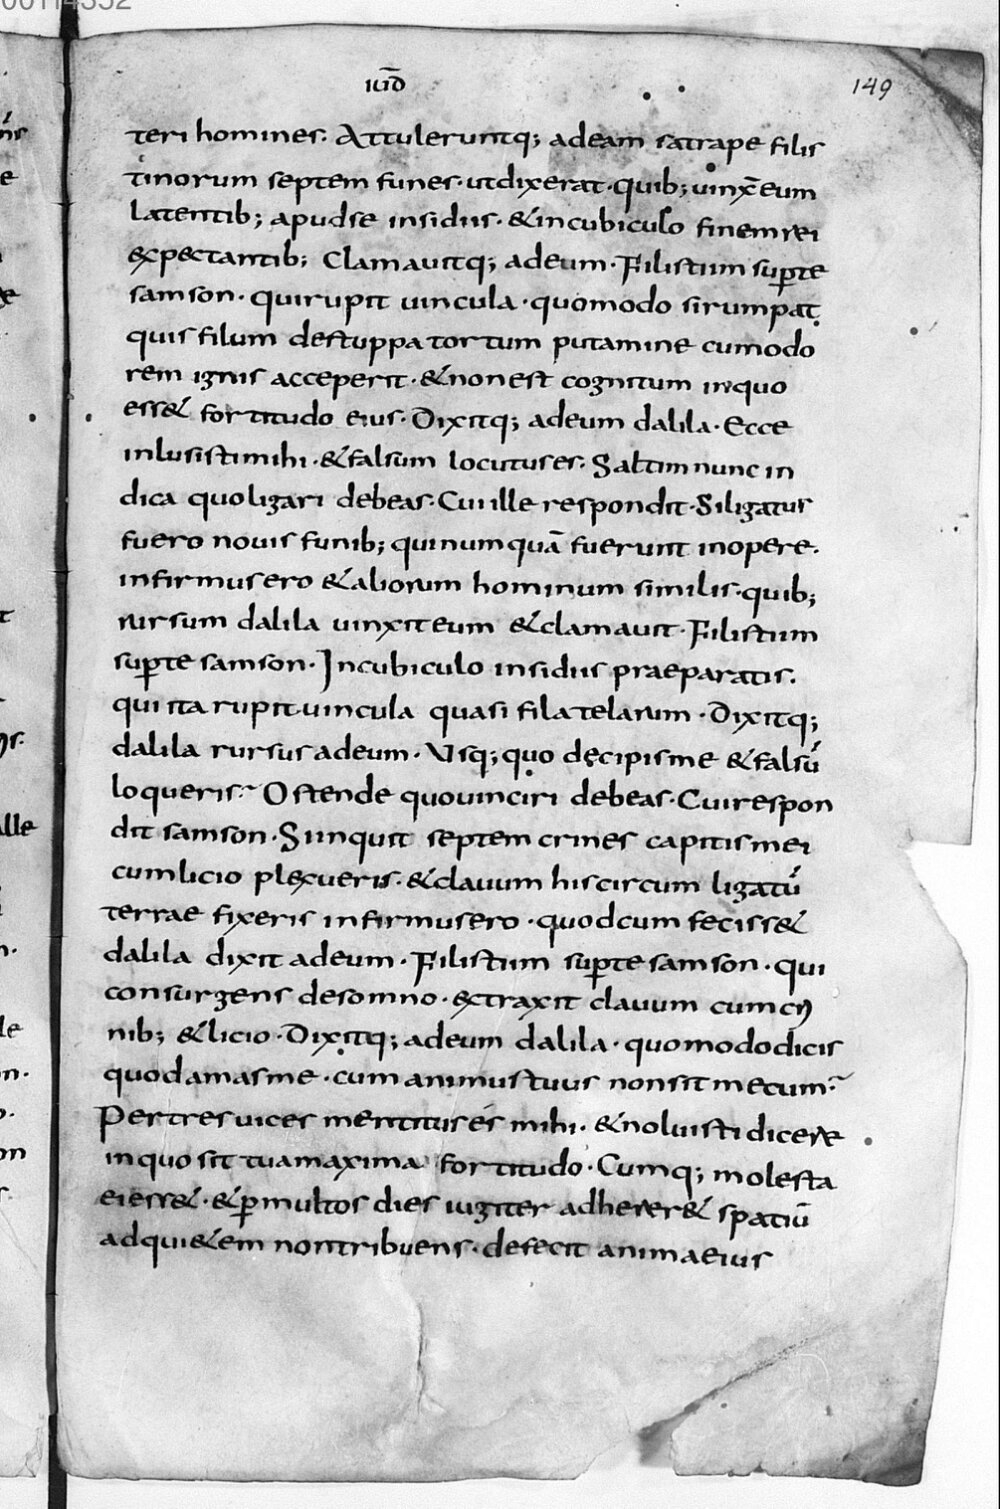 00114352
iud̄
149
teri homines. Attuleruntq; adeam satrape filis
tinorum septem funes. utdixerat. quib; uinx̄eum
latentib; apudse insidiis. &incubiculo finemrei
expectantib; Clamauitq; adeum. Filistiim sup̱te
samson. quirupit uincula. quomodo sirumpat
quis filum destuppa tortum putamine cumodo
rem ignis acceperit. &nonest cognitum inquo
ess& fortitudo eius. Dixitq; adeum dalila. Ecce
inlusistimihi. &falsum locutuses. Saltimnunc in
dica quoligari debeas. Cui ille respondit. Siligatus
fuero nouis funib; quinumquā fuerunt inopere.
infirmusero &aliorum hominum similis. quib;
rursum dalila uinxiteum &clamauit. Filistiim
sup̱te samson. Incubiculo insidiis praeparatis.
qui ita rupituincula quasi fila telarum. Dixitq;
dalila rursus adeum. Usq; quo decipisme &falsū
loqueris? Ostende quouinciri debeas. Cuirespon
dit samson. Siinquit septem crines capitismei
cumlicio plexueris. &clauum hiscircum ligatū
terrae fixeris infirmusero. quodcum feciss&
dalila dixit adeum. Filistiim sup̱te samson. qui
consurgens desomno. extraxit clauum cumcri
nib; &licio. Dixitq; adeum dalila. quomododicis
quodamasme. cum animustuus nonsit mecum?
Pertresuices mentituses mihi. &noluisti dicere
inquo sit tuamaxima fortitudo. Cumq; molesta
eiess&. &p̱multos dies iugiter adherer& spatiū
adqui&em nontribuens. defecit animaeius